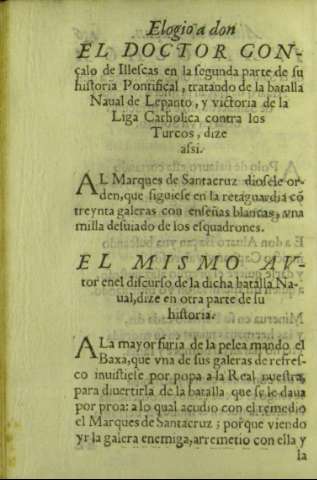 Elogio a don
EL DOCTOR GON-
çalo de Illescas en la segunda parte de su
historia Pontifical, tratando de la batalla
Naual de Lepanto, y victoria de la
Liga Catholica contra los
Turcos, dize
assi.
AL Marques de Santacruz diosele or-
den, que siguiese en la retaguardia cõ
treynta galeras con enseñas blancas, vna
milla desuiado de los esquadrones.
EL MISMO AV-
tor enel discurso de la dicha batalla Na-
ual, dize en otra parte de su
historia.
A La mayor furia de la pelea mando el
Baxa, que vna de sus galeras de refres-
co inuistiese por popa a la Real nuestra,
para diuertirla de la batalla que se le daua
por proa: a lo qual acudio con el remedio
el Marques de Santacruz; porque viendo
yr la galera enemiga, arremetio con ella y
la